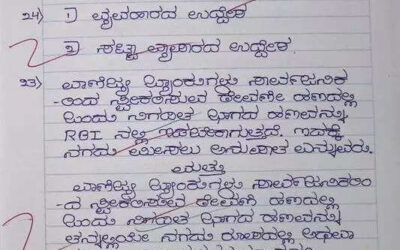 24) 1) ವ್ಯವಹಾರದ ಉದ್ದೇಶ
2) ಸಟ್ಟಾ ವ್ಯಾಪಾರದ ಉದ್ದೇಶ.
23) ವಾಣಿಜ್ಯ ಬ್ಯಾಂಕುಗಳು ಸಾರ್ವಜನಿಕ
-ರಿಂದ ಸ್ವೀಕರಿಸುವ ಠೇವಣಿ ಹಣದಲ್ಲಿ
ಒಂದು ನಿಗದಿತ ಭಾಗದ ಹಣವನ್ನು
RBI ನಲ್ಲಿ ಇಡಬೇಕಾಗುತ್ತದೆ. ಇದಕ್ಕೆ
ನಗದು ಮೀಸಲು ಅನುಪಾತ ಎನ್ನುವರು.
ಮತ್ತು
ವಾಣಿಜ್ಯ ಬ್ಯಾಂಕುಗಳು ಸಾರ್ವಜನಿಕರಿಂ
-ದ ಸ್ವೀಕರಿಸಿರುವ ಠೇವಣಿ ಹಣದಲ್ಲಿ
ಒಂದು ನಿಗದಿತ ಭಾಗದ ಹಣವನ್ನು
ತನ್ನಲ್ಲಿಯೇ ನಗದು ರೂಪದಲ್ಲಿ ಅಥವಾ